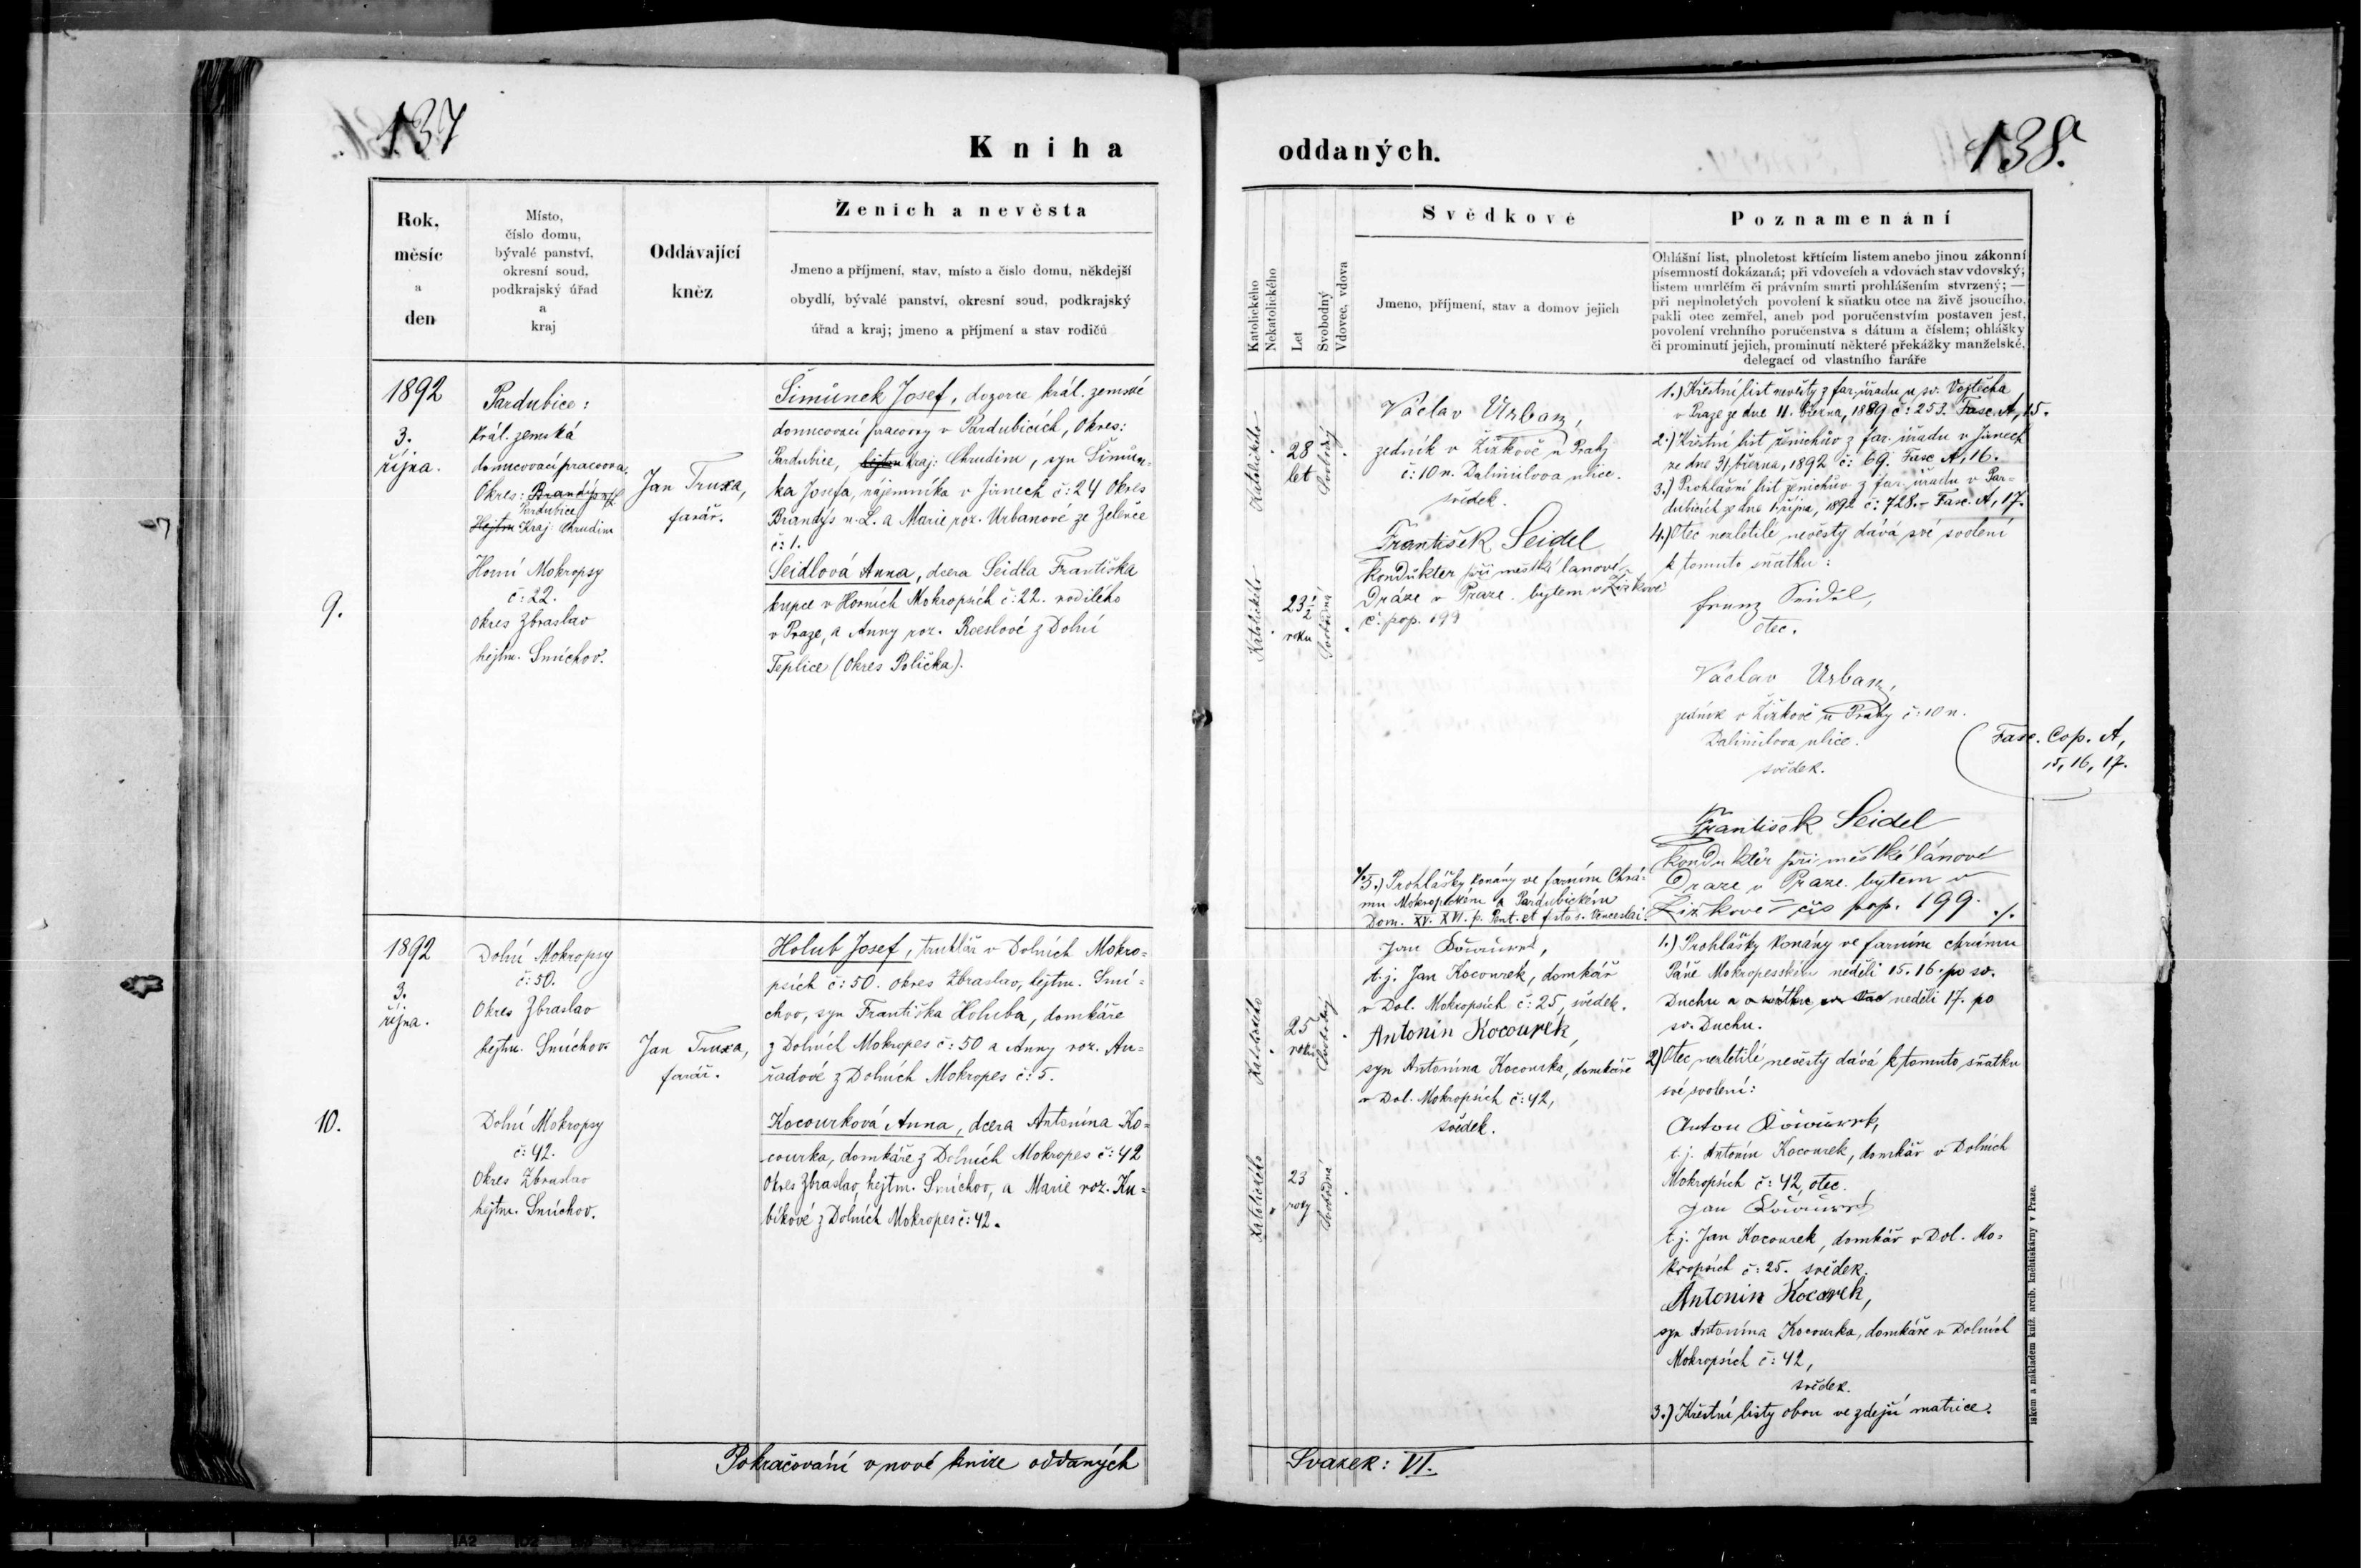 137
Kniha
oddaných.
138.
Rok,
měsíc
a
den
Místo,
číslo domu,
bývalé panství,
okresní soud,
podkrajský úřad
a
kraj
Oddávající
kněz
Ženich a nevěsta
Jmeno a příjmení, stav, místo a číslo domu, někdejší
obydlí, bývalé panství, okresní soud, podkrajský
úřad a kraj; jmeno a příjmení a stav rodičů
Katolického
Nekatolického
Let
Svobodný
Vdovec, vdova
Svědkové
Jmeno, příjmení, stav a domov jejich
Poznamenání
Ohlášní list, plnoletost křtícím listem anebo jinou zákonní
písemností dokázaná; při vdovcích a vdovách stav vdovský;
listem umrlčím či právním smrti prohlášením stvrzený; —
při neplnoletých povolení k sňatku otce na živě jsoucího,
pakli otec zemřel, aneb pod poručenstvím postaven jest,
povolení vrchního poručenstva s dátum a číslem; ohlášky
či prominutí jejich, prominutí některé překážky manželské,
delegací od vlastního faráře
9.
1892
3.
října.
Pardubice:
král. zemská
donucovací pracovna.
Okres: Brandýs n/L
Pardubice
Hejtm Kraj: Chrudim
Horní Mokropsy
č: 22.
okres Zbraslav
hejtm. Smíchov.
Jan Truxa,
farář.
Šimůnek Josef, dozorce král. zemské
donucovací pracovny v Pardubicích, Okres:
Pardubice, hejtm kraj: Chrudim, syn Šimůn-
ka Josefa, nájemníka v Jirnech č: 24 Okres
Brandýs n. L. a Marie roz. Urbanové ze Zeleneč
č: 1.
Seidlová Anna, dcera Seidla Františka
kupce v Horních Mokropsích č: 22. rodilého
v Praze, a Anny roz. Roeslové z Dolní
Teplice (Okres Polička).
Katolického
28
let
Svobodný
Katolického
23½
roku
Svobodná
Václav Urban,
zedník v Žižkově u Prahy
č: 10 n. Dalimilova ulice.
svědek.
František Seidel
Kondukter při městké lanové
Dráze v Praze. bytem v Žižkově
č. pop. 199
%5.) Prohlášky konány ve farním Chrá-
mu Mokropském a Pardubickém
Dom. XV. XVI. p. Pent. et festo s. Venceslai.
1.) Křestní list nevěsty z far. úřadu u sv. Vojtěcha
v Praze ze dne 11. března, 1889 č: 253. Fasc. A, 15.
2.) Křestní list ženichův z far. úřadu v Jirnech
ze dne 31. března, 1892 č: 69. Fasc A, 16.
3.) Prohlašní list ženichův z far. úřadu v Par-
dubicích ze dne 1. října, 1892 č: 728. – Fasc. A, 17.
4.) Otec nezletilé nevěsty dává své svolení
k tomuto sňatku:
Franz Seidel,
otec.
Václav Urban,
zedník v Žižkově u Prahy č: 10 n.
Dalimilova ulice.
svědek.
Fasc. Cop. A,
15, 16, 17.
František Seidel
Konduktér při městké lánové
Draze v Praze. bytem v
Žižkově čís pop. 199. ./.
10.
1892
3.
října.
Dolní Mokropsy
č: 50.
Okres Zbraslav
hejtm. Smíchov
Dolní Mokropsy
č: 42.
Okres Zbraslav
hejtm. Smíchov.
Jan Truxa,
farář.
Holub Josef, truhlář v Dolních Mokro=
psích č: 50. okres Zbraslav, hejtm. Smí=
chov, syn Františka Holuba, domkáře
z Dolních Mokropes č: 50 a Anny roz. An=
radové z Dolních Mokropes č: 5.
Kocourková Anna, dcera Antonína Ko=
courka, domkáře z Dolních Mokropes č: 42
Okres Zbraslav, hejtm. Smíchov, a Marie roz. Ku=
bíkové z Dolních Mokropes č: 42.
Katolického
25
roků
Svobodný
Katolického
23
roky
Svobodná
Jan Kocourek,
t. j. Jan Kocourek, domkář
v Dol. Mokropsích č: 25, svědek.
Antonín Kocourek,
syn Antonína Kocourka, domkáře
v Dol. Mokropsích č: 42,
svědek.
1.) Prohlášky konány ve farním chrámu
Páně Mokropesském neděli 15. 16. po sv.
Duchu a neděli 17. po
sv. Duchu.
2) Otec nezletilé nevěsty dává k tomuto sňatku
své svolení:
Anton Kocourek,
t. j. Antonín Kocourek, domkář v Dolních
Mokropsích č: 42, otec.
Jan Kocourek
t. j. Jan Kocourek, domkář v Dol. Mo=
kropsích č: 25. svědek.
Antonin Kocorek,
syn Antonína Kocourka, domkáře v Dolních
Mokropsích č: 42,
svědek.
3.) Křestní listy obou ve zdejší matrice.
Pokračování v nové knize oddaných
Svazek: VI.
tiskem a nákladem kníž. arcib. kněhtiskárny v Praze.